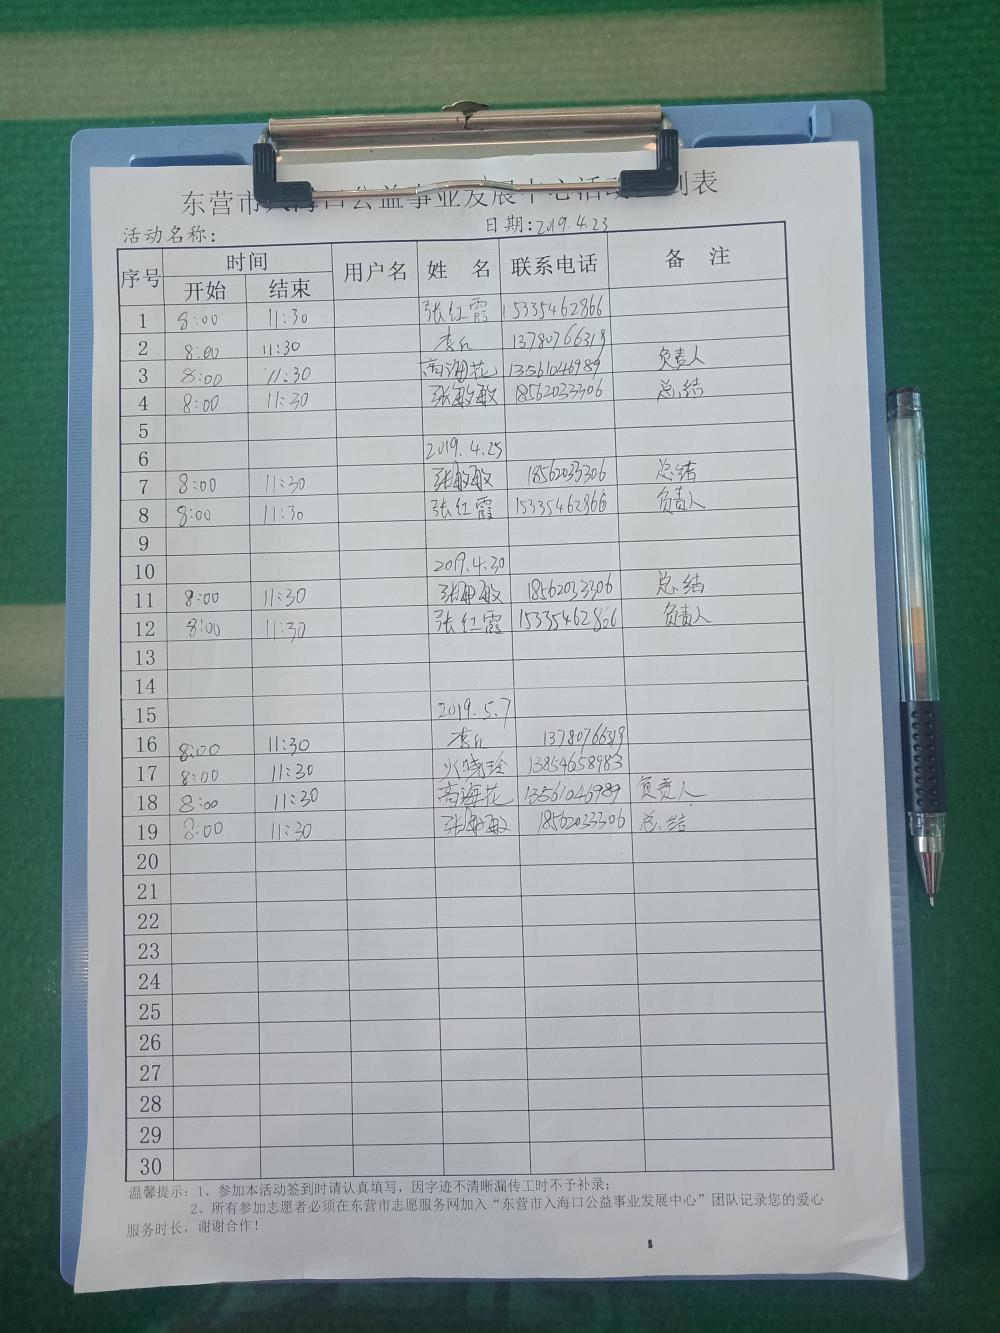 东营市入海口公益事业发展中心活动 到表
活动名称: 日期:2019.4.23
序号 时间 用户名 姓 名 联系电话 备 注
开始 结束
1 8:00 11:30 张红霞 15335462866
2 8:00 11:30 李丘 13780766319
3 8:00 11:30 高海花 13561046989 负责人
4 8:00 11:30 张敏敏 18562033306 总结
5
6 2019.4.25
7 8:00 11:30 张敏敏 18562033306 总结
8 8:00 11:30 张红霞 15335462866 负责人
9
10 2019.4.30
11 8:00 11:30 张敏敏 18562033306 总结
12 8:00 11:30 张红霞 15335462866 负责人
13
14
15 2019.5.7
16 8:00 11:30 李丘 13780766319
17 8:00 11:30 火晓玲 13854658983
18 8:00 11:30 高海花 13561046989 负责人
19 8:00 11:30 张敏敏 18562033306 总结
20
21
22
23
24
25
26
27
28
29
30
温馨提示:1、参加本活动签到时请认真填写,因字迹不清晰漏传工时不予补录;
2、所有参加志愿者必须在东营市志愿服务网加入“东营市入海口公益事业发展中心”团队记录您的爱心
服务时长,谢谢合作!